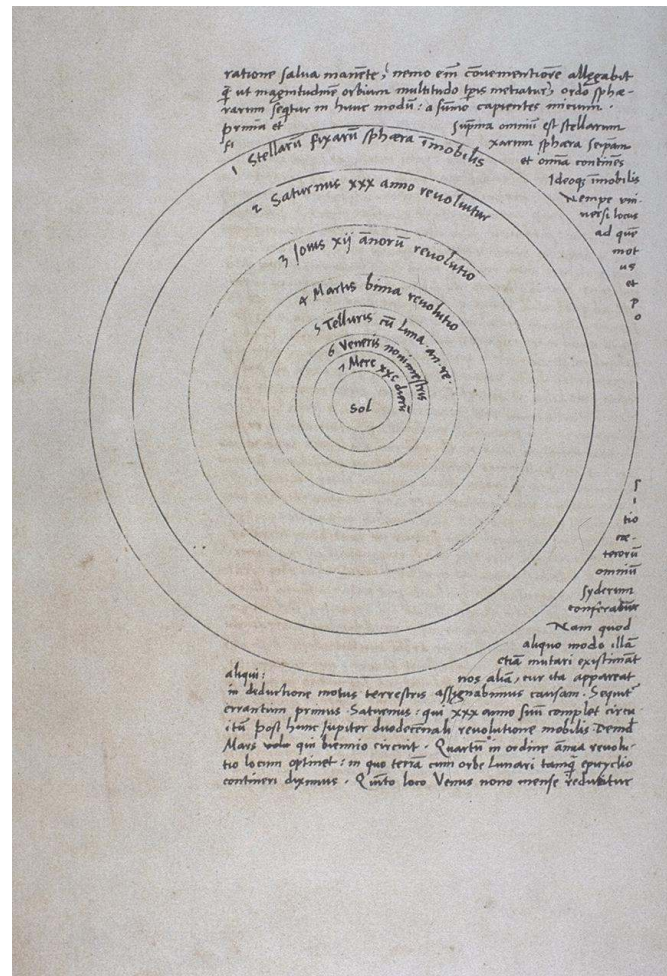 ratione salua manẽte, nemo em̃ cõuenientiorẽ allegabit
q̃ ut magnitudinẽ orbium multitudo tp̃is metiatur, ordo sphæ-
rarum seqtur in hunc modũ: a sum̃o capientes inicium.
prima et suprema omniũ est stellarum
fi xarum sphæra seip̃am
et om̃ia continẽs
Ideoq; im̃obilis
Nempe vni-
uersi locus
ad quẽ
mot
us
et
p
o
1 Stellarũ fixarũ sphæra im̃obilis
2 Saturnus xxx anno reuoluitur
3 Iouis xij ãnorũ reuolutio
4 Martis bima reuolutio
5 Telluris cũ Luna an. re.
6 Veneris nonimestris
7 Merc xxc dierũ
Sol
s
i
tio
cæ-
terorũ
omniũ
syderum
conferatur
Nam quod
aliquo modo illã
etiã mutari existimãt
aliqui: nos aliã, cur ita appareat
in deductione motus terrestris assignabimus causam. Sequit
errantium primus Saturnus: qui xxx anno suũ complet circu
itũ post hunc Iupiter duodecenali reuolutione mobilis Deind
Mars qui biennio circuit. Quartũ in ordine ãnua reuolu-
tio locum optinet: in quo terrã cum orbe Lunari tamq̃ epicyclio
contineri diximus. Quinto loco Venus nono mense reducitur